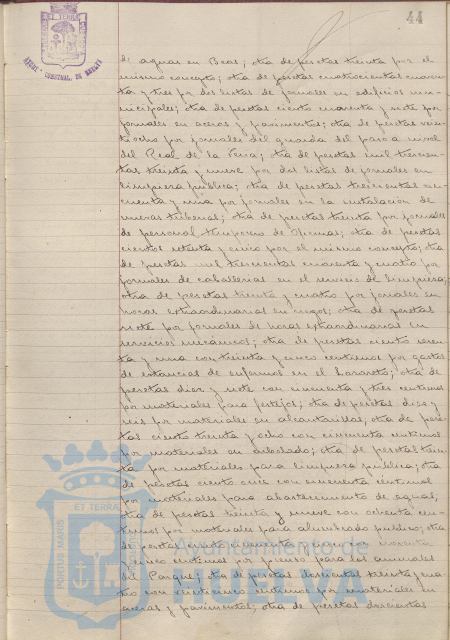 44
ET TERRA
de aguas en Beas; otra de pesetas treinta por el
mismo concepto; otra de pesetas cuatrocientas cuaren-
ta y tres por dos listas de jornales en edificios mu-
nicipales; otra de pesetas ciento cuarenta y siete por
jornales en aceras y pavimentos; otra de pesetas vein-
tiocho por jornales del guarda del paso a nivel
del Real de la Feria; otra de pesetas mil trescien-
tas treinta y nueve por dos listas de jornales en
limpieza pública; otra de pesetas trescientas cin-
cuenta y una por jornales en la instalación de
nuevas tuberias; otra de pesetas treinta por jornales
de personal temporero de Oficinas; otra de pesetas
cientos setenta y cinco por el mismo concepto; otra
de pesetas mil trescientas cuarenta y cuatro por
jornales de caballerias en el servicio de limpieza;
otra de pesetas treinta y cuatro por jornales en
horas extraordinarias en riegos; otra de pesetas
siete por jornales de horas extraordinarias en
servicios mecánicos; otra de pesetas ciento
ta y una con treinta y cinco centimos por gastos
de estancias de enfermos en el Lazareto; otra de
pesetas diez y siete con cincuenta y tres centimos
por materiales para festejos; otra de pesetas diez y
seis por materiales en alcantarillas; otra de pese-
tas ciento treinta y ocho con cincuenta centimos
por materiales en arbolado; otra de pesetas trein-
ta por materiales para limpieza publica; otra
de pesetas ciento once con cincuenta centimos
por materiales para abastecimiento de aguas;
otra de pesetas treinta y nueve con ochenta cen-
timos por materiales para alumbrado publico; otra
de pesetas ciento cincuenta y con noventa
y cinco centimos por pienso para los animales
del Parque; otra de pesetas doscientas treinta y cua-
tro con veinticinco centimos por materiales en
aceras y pavimentos; otra de pesetas doscientas
PORTUS MARIS ET TERRAE
Ayuntamiento de
HUELVA